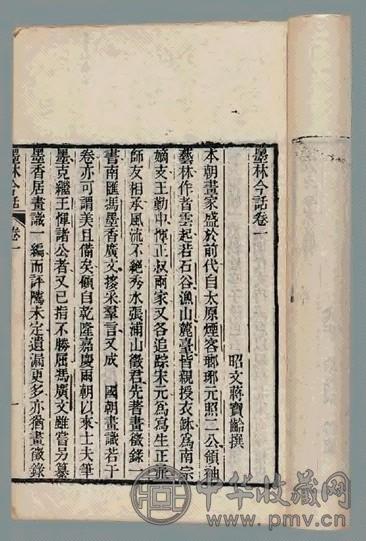 墨林今話卷一
昭文蔣寶齡撰
本朝畫家盛於前代自太原煙客瑯琊元照二公領袖
藝林作者雲起若石谷漁山麓臺皆親授衣鉢為南宗
嫡支王勤中惲正叔兩家又各追踪宋元為寫生正派
師友相承風流不絕秀水張浦山徵君先著畫徵錄一
書南匯馮墨香廣文搜采羣言又成 國朝畫識若干
卷亦可謂美且備矣顧自乾隆嘉慶兩朝以來士夫筆
墨克繼王惲諸公者又已指不勝屈馮廣文雖嘗另纂
墨香居畫識一編而評隲未定遺漏更多亦猶畫徵錄
墨林今話 卷一 一
中华收藏网
www.pmv.cn